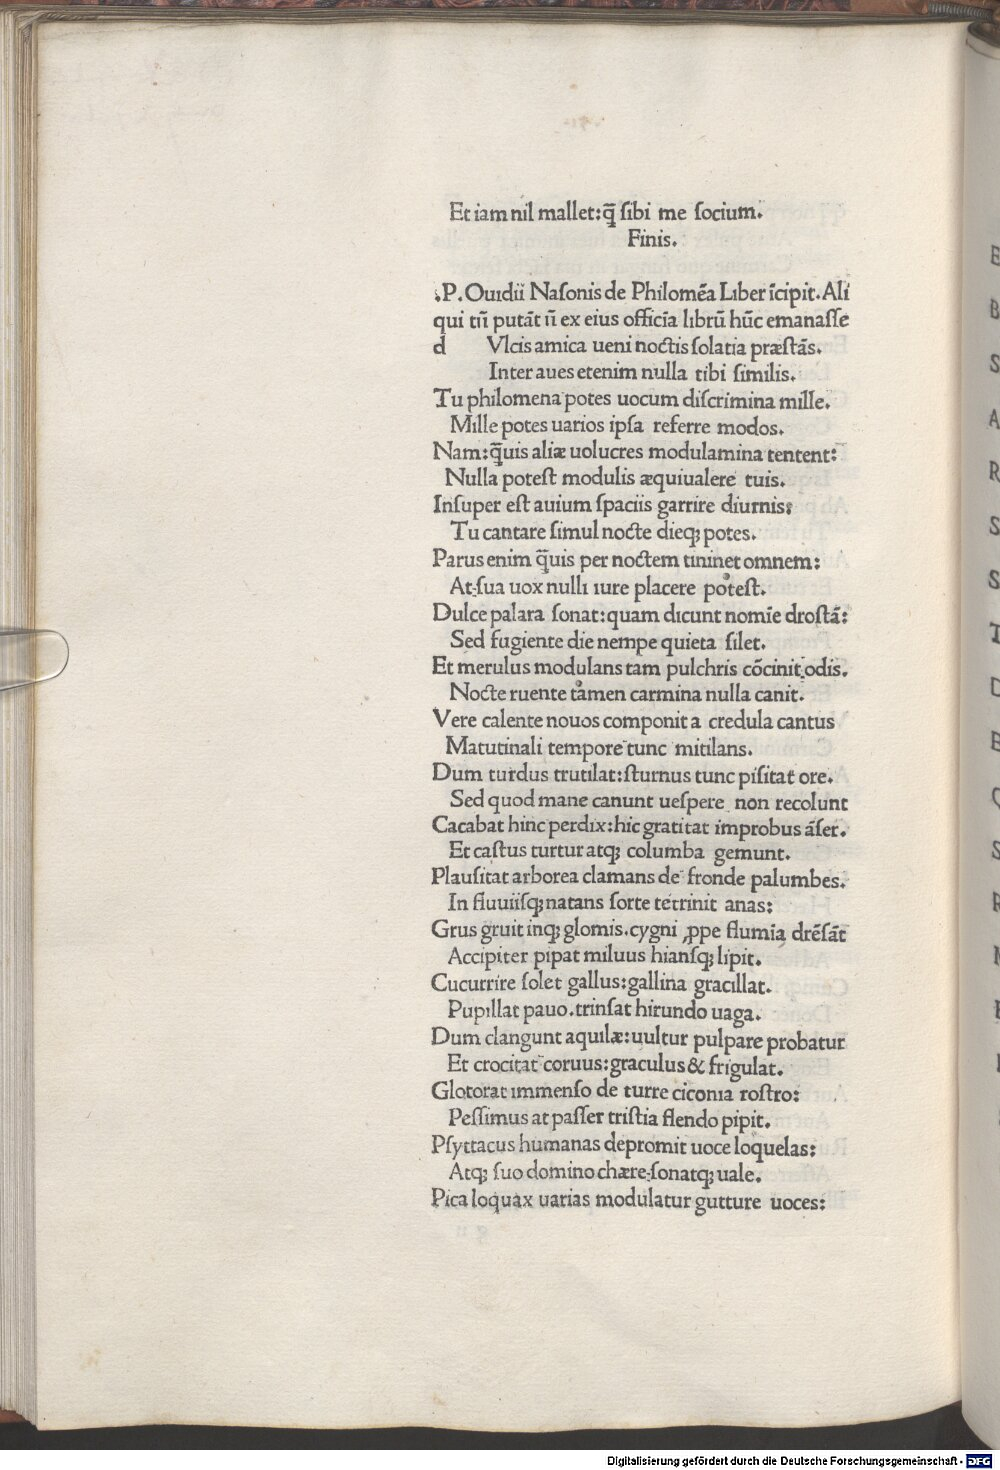 Et iam nil mallet:q̄ ſibi me ſocium.
Finis.
.P. Ouidii Naſonis de Philomēa Liber īcipit. Ali
qui tn̄ putāt n̄ ex eius officīa librū hūc emanaſſe
d Vlcis amica ueni noctis ſolatia præſtās.
Inter aues etenim nulla tibi ſimilis.
Tu philomena potes uocum diſcrimina mille.
Mille potes uarios ipſa referre modos.
Nam:q̄uis aliæ uolucres modulamina tentent:
Nulla poteſt modulis æquiualere tuis.
Inſuper eſt auium ſpaciis garrire diurnis:
Tu cantare ſimul nocte dieq; potes.
Parus enim q̄uis per noctem tininet omnem:
At ſua uox nulli iure placere poteſt.
Dulce palara ſonat:quam dicunt nomīe droſtā:
Sed fugiente die nempe quieta ſilet.
Et merulus modulans tam pulchris cōcinit odis.
Nocte ruente tamen carmina nulla canit.
Vere calente nouos componit a credula cantus
Matutinali tempore tunc mitilans.
Dum turdus trutilat:ſturnus tunc piſitat ore.
Sed quod mane canunt ueſpere non recolunt
Cacabat hinc perdix:hic gratitat improbus āſer.
Et caſtus turtur atq; columba gemunt.
Plauſitat arborea clamans de fronde palumbes.
In fluuiiſq; natans forte tetrinit anas:
Grus gruit inq; glomis.cygni ꝓpe flumīa drēſāt
Accipiter pipat miluus hianſq; lipit.
Cucurrire ſolet gallus:gallina gracillat.
Pupillat pauo.trinſat hirundo uaga.
Dum clangunt aquilæ:uultur pulpare probatur
Et crocitat coruus:graculus & frigulat.
Glotorat immenſo de turre ciconia roſtro:
Peſſimus at paſſer triſtia flendo pipit.
Pſyttacus humanas depromit uoce loquelas:
Atq; ſuo domino chære:ſonatq; uale.
Pica loquax uarias modulatur gutture uoces:
Digitalisierung gefördert durch die Deutsche Forschungsgemeinschaft - DFG